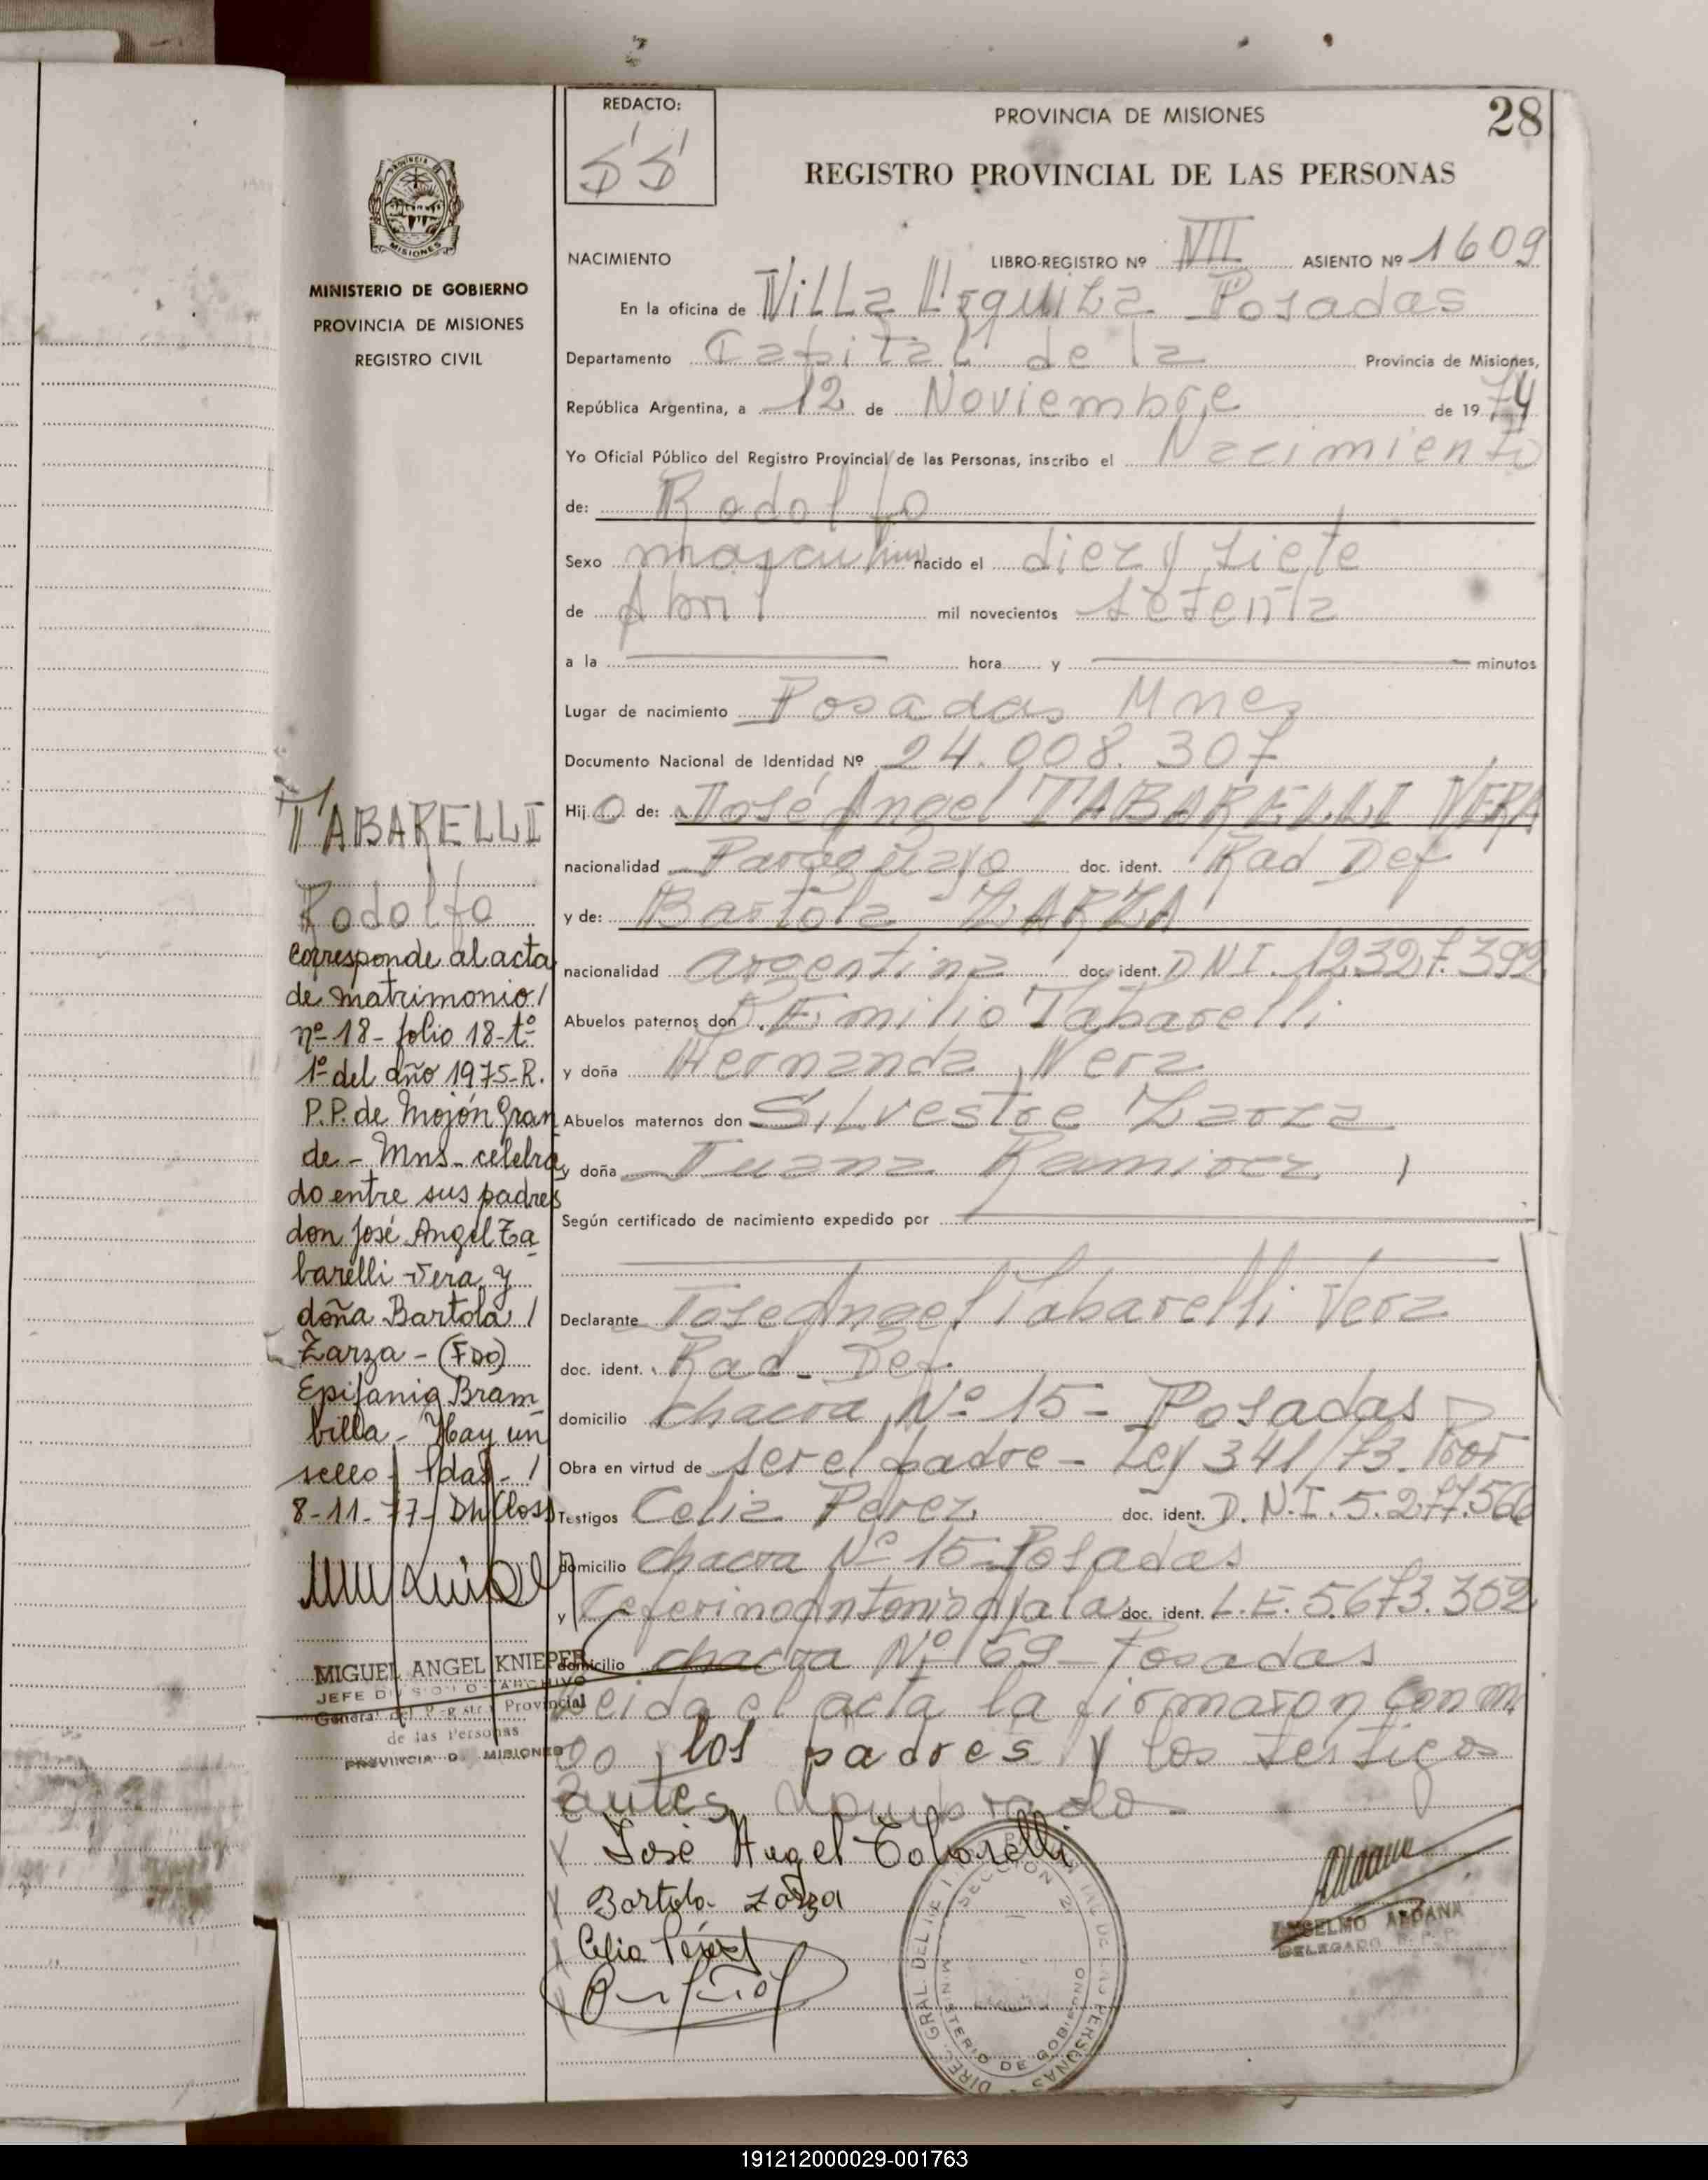 REDACTO:
PROVINCIA DE MISIONES
28
REGISTRO PROVINCIAL DE LAS PERSONAS
MISIONES
MINISTERIO DE GOBIERNO
PROVINCIA DE MISIONES
REGISTRO CIVIL
NACIMIENTO LIBRO-REGISTRO Nº VII ASIENTO Nº 1609
En la oficina de Villa Urquiza Posadas
Departamento Capital de la Provincia de Misiones,
República Argentina, a 12 de Noviembre de 1974
Yo Oficial Público del Registro Provincial de las Personas, inscribo el Nacimiento
de: Rodolfo
Sexo masculino nacido el diez y siete
de Abril mil novecientos setenta
a la hora y minutos
Lugar de nacimiento Posadas Mnes
Documento Nacional de Identidad Nº 24.008.307
Hijo de: José Angel TABARELLI VERA
nacionalidad Paraguayo doc. ident. Rad Def
y de: Bartola ZARZA
nacionalidad argentina doc. ident. DNI. 12327.392
Abuelos paternos don Emilio Tabarelli
y doña Hernanda Vera
Abuelos maternos don Silvestre Zarza
y doña Juana Ramirez
Según certificado de nacimiento expedido por
Declarante Jose Angel Tabarelli Vera
doc. ident. Rad. Def.
domicilio chacra Nº 15 - Posadas
Obra en virtud de ser el padre - Ley 341/73.
Testigos Celia Perez doc. ident. D.N.I. 5.277.566
domicilio chacra Nº 15 - Posadas
y Ceferino Antonio Ayala doc. ident. L.E. 5.673.352
domicilio chacra Nº 69 - Posadas
Leida el acta la firmaron conmi
go, los padres y los testigos
antes nombrado
José Angel Tabarelli
Bartola Zarza
Celia Pérez
ANSELMO ALDANA
DELEGADO R. P. P.
MINISTERIO DE GOBIERNO
TABARELLI
Rodolfo
Corresponde al acta
de matrimonio /
nº 18 - folio 18 - tº
1º del año 1975 - R.
P.P. de Mojón Gran
de - Mns - celebra
do entre sus padres
don José Angel Ta
barelli Vera y
doña Bartola /
Zarza - (FDO)
Epifania Bram
billa - Hay un
sello - Pdas - /
8-11-77 -
MIGUEL ANGEL KNIEPER
JEFE DIVISION ARCHIVO
General del Registro Provincial
de las Personas
PROVINCIA DE MISIONES
191212000029-001763